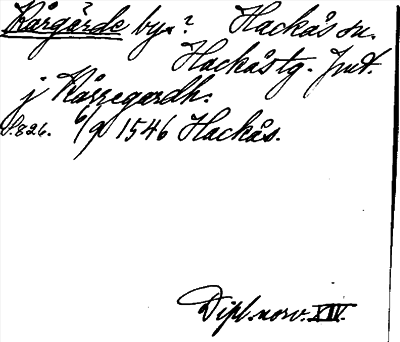 Kårgärde by.? Hackås sn.
Hackås tg. Jmt.
j Kårregardh.
S. 826. 6/9 1546 Hackås.
Dipl. norv. XIV.